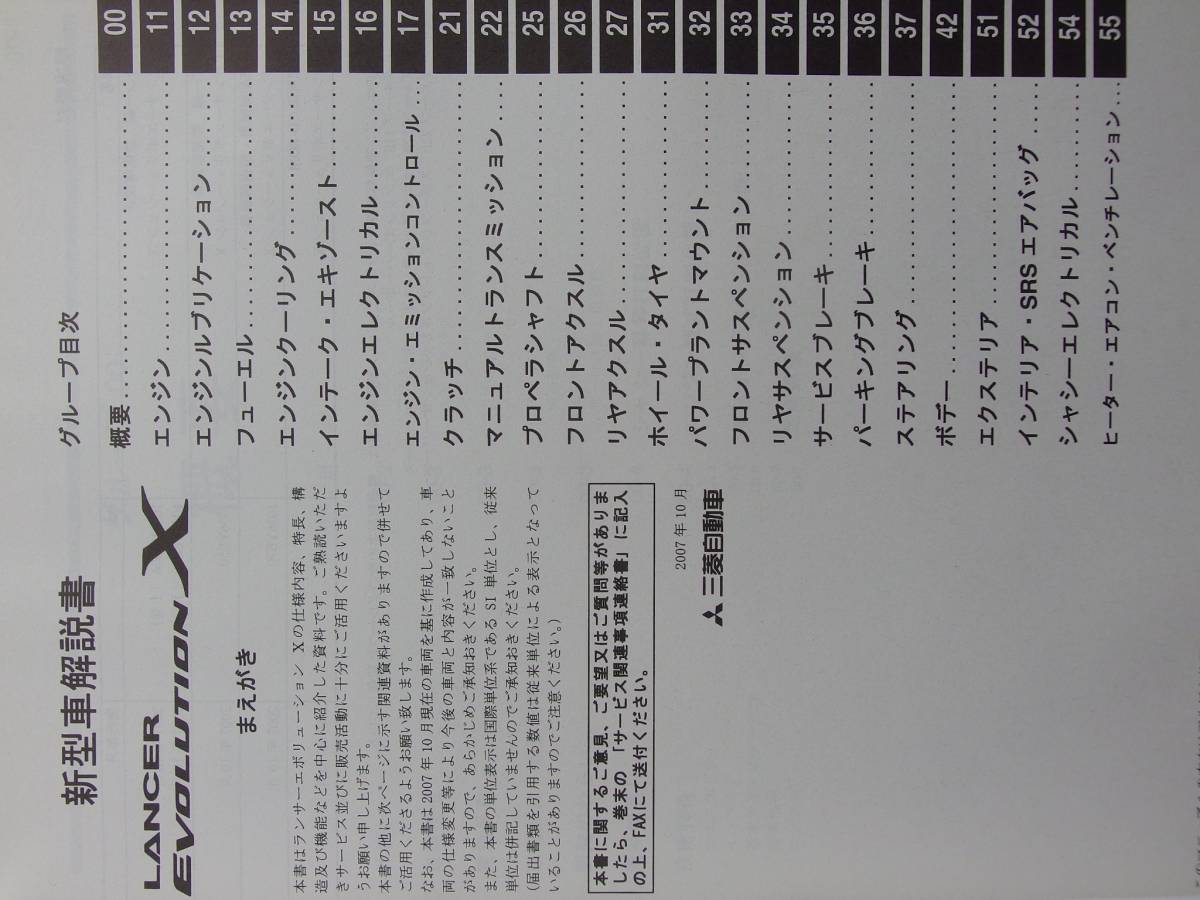 新型車解説書
LANCER
EVOLUTION X
まえがき
本書はランサーエボリューション Xの仕様内容、特長、構
造及び機能などを中心に紹介した資料です。ご熟読いただ
きサービス並びに販売活動に十分にご活用くださいますよ
うお願い申し上げます。
本書の他に次ページに示す関連資料がありますので併せて
ご活用くださるようお願い致します。
なお、本書は2007年10月現在の車両を基に作成してあり、車
両の仕様変更等により今後の車両と内容が一致しないこと
がありますので、あらかじめご承知おきください。
また、本書の単位表示は国際単位系であるSI単位とし、従来
単位は併記していませんのでご承知おきください。
(届出書類を引用する数値は従来単位による表示となって
いることがありますのでご注意ください。)
本書に関するご意見、ご要望又はご質問等がありま
したら、巻末の「サービス関連事項連絡書」に記入
の上、FAXにて送付ください。
2007年10月
三菱自動車
グループ目次
概要 00
エンジン 11
エンジンルブリケーション 12
フューエル 13
エンジンクーリング 14
インテーク・エキゾースト 15
エンジンエレクトリカル 16
エンジン・エミッションコントロール 17
クラッチ 21
マニュアルトランスミッション 22
プロペラシャフト 25
フロントアクスル 26
リヤアクスル 27
ホイール・タイヤ 31
パワープラントマウント 32
フロントサスペンション 33
リヤサスペンション 34
サービスブレーキ 35
パーキングブレーキ 36
ステアリング 37
ボデー 42
エクステリア 51
インテリア・SRSエアバッグ 52
シャシーエレクトリカル 54
ヒーター・エアコン・ベンチレーション 55